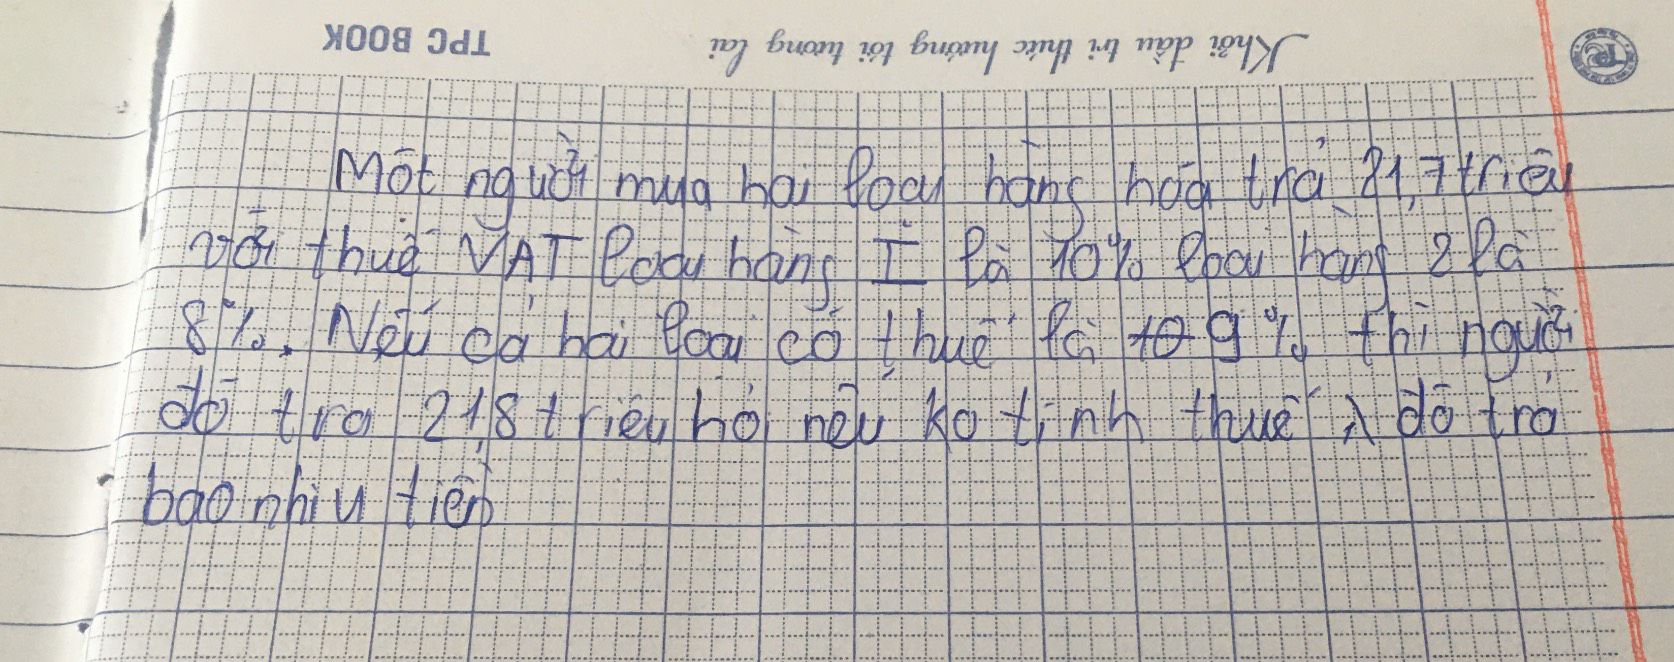 Khởi đầu tri thức hướng tới tương lai TPC BOOK
Một người mua hai loại hàng hóa trả 21,7 triệu
với thuế VAT loại hàng I là 10% loại hàng 2 là
8%. Nếu cả hai loại có thuế là 10 9% thì người
đó trả 21,8 triệu hỏi nếu ko tính thuế λ đó trả
bao nhiu tiền